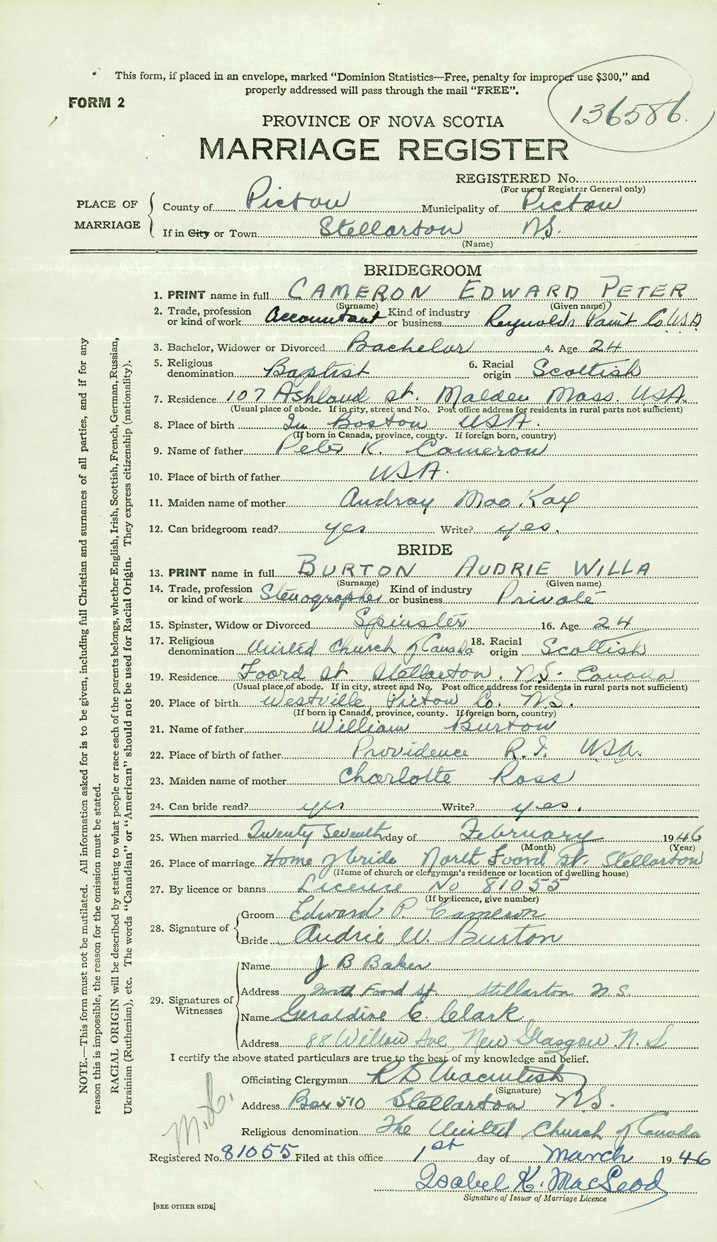 This form, if placed in an envelope, marked “Dominion Statistics—Free, penalty for improper use $300,” and
properly addressed will pass through the mail “FREE”.
FORM 2
136586.
PROVINCE OF NOVA SCOTIA
MARRIAGE REGISTER
REGISTERED No.
(For use of Registrar General only)
PLACE OF MARRIAGE
County of Pictou Municipality of Pictou
If in City or Town Stellarton N.S.
(Name)
BRIDEGROOM
1. PRINT name in full CAMERON EDWARD PETER
(Surname) (Given name)
2. Trade, profession or kind of work Accountant Kind of industry or business Reynolds Paint Co. U.S.A
3. Bachelor, Widower or Divorced Bachelor 4. Age 24
5. Religious denomination Baptist 6. Racial origin Scottish
7. Residence 107 Ashland St. Malden Mass. U.S.A.
(Usual place of abode. If in city, street and No. Post office address for residents in rural parts not sufficient)
8. Place of birth In Boston U.S.A.
(If born in Canada, province, county. If foreign born, country)
9. Name of father Peter K. Cameron
10. Place of birth of father U.S.A.
11. Maiden name of mother Audray MacKay
12. Can bridegroom read? yes Write? yes.
BRIDE
13. PRINT name in full BURTON AUDRIE WILLA
(Surname) (Given name)
14. Trade, profession or kind of work Stenographer Kind of industry or business Private
15. Spinster, Widow or Divorced Spinster 16. Age 24
17. Religious denomination United Church of Canada 18. Racial origin Scottish
19. Residence Foord St. Stellarton. N.S. Canada
(Usual place of abode. If in city, street and No. Post office address for residents in rural parts not sufficient)
20. Place of birth Westville Pictou Co. N.S.
(If born in Canada, province, county. If foreign born, country)
21. Name of father William Burton
22. Place of birth of father Providence R.I. U.S.A.
23. Maiden name of mother Charlotte Ross
24. Can bride read? yes Write? yes.
25. When married Twenty Seventh day of February 1946
(Month) (Year)
26. Place of marriage Home of bride North Foord St. Stellarton
(Name of church or clergyman's residence or location of dwelling house)
27. By licence or banns Licence No 81055
(If by licence, give number)
28. Signature of
Groom Edward P Cameron
Bride Audrie W. Burton
29. Signatures of Witnesses
Name J B Baker
Address North Foord St. Stellarton N.S.
Name Geraldine E. Clark
Address 88 Willow Ave, New Glasgow N.S
I certify the above stated particulars are true to the best of my knowledge and belief.
Officiating Clergyman
(Signature)
Address Box 510 Stellarton N.S.
Religious denomination The United Church of Canada
Registered No. 81055 Filed at this office 1st day of March 1946
Isabel K. MacLeod
Signature of Issuer of Marriage Licence
[SEE OTHER SIDE]
NOTE.—This form must not be mutilated. All information asked for is to be given, including full Christian and surnames of all parties, and if for any
reason this is impossible, the reason for the omission must be stated.
RACIAL ORIGIN will be described by stating to what people or race each of the parents belongs, whether English, Irish, Scottish, French, German, Russian,
Ukrainian (Ruthenian), etc. The words “Canadian” or “American” should not be used for Racial Origin. They express citizenship (nationality).